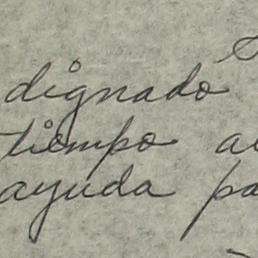 dignado
tiempo
ayuda pa